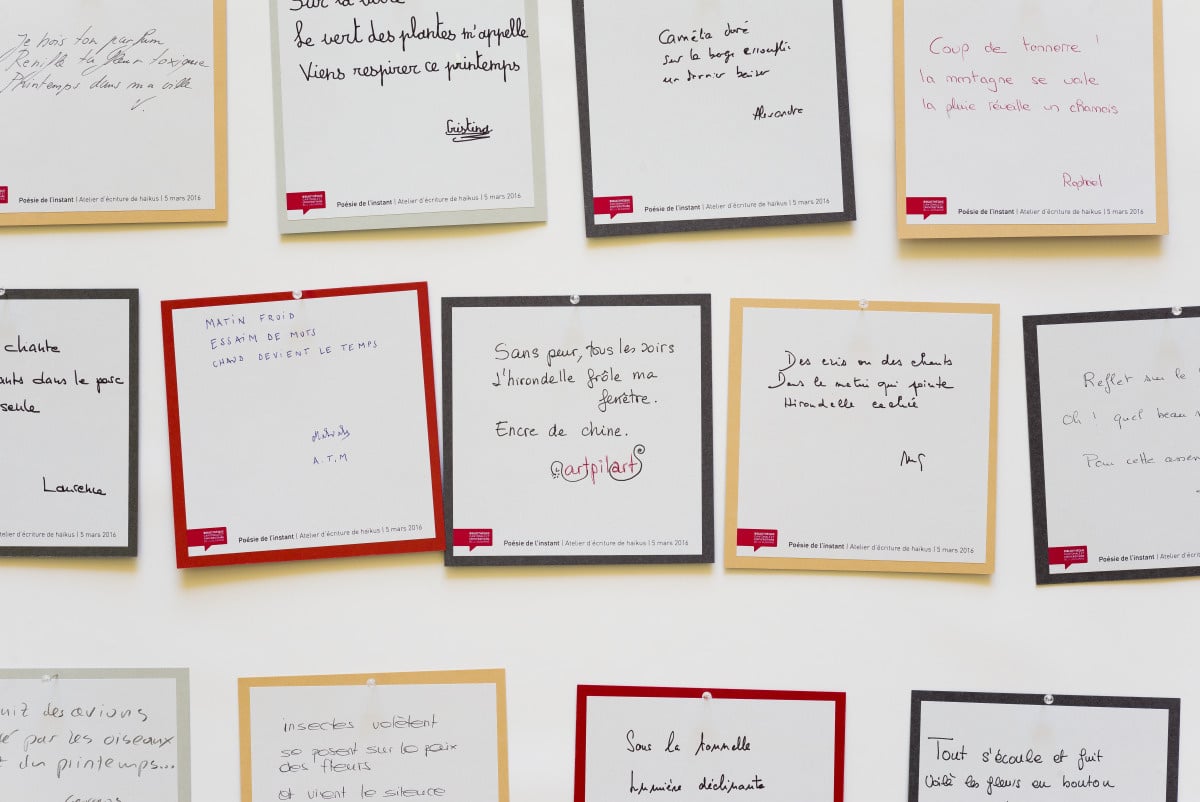 Je bois ton parfum
Renifle ta fleur toxique
Printemps dans ma ville
V.
Le vert des plantes m'appelle
Viens respirer ce printemps
Cristina
Poésie de l'instant | Atelier d'écriture de haïkus | 5 mars 2016
Camélia doré
sur la berge
un dernier baiser
Alexandre
Poésie de l'instant | Atelier d'écriture de haïkus | 5 mars 2016
Coup de tonnerre !
la montagne se voile
la pluie réveille un chamois
Raphael
Poésie de l'instant | Atelier d'écriture de haïkus | 5 mars 2016
chante
dans le parc
seule
Laurence
MATIN FROID
ESSAIM DE MOTS
CHAUD DEVIENT LE TEMPS
A.T.M
Poésie de l'instant | Atelier d'écriture de haïkus | 5 mars 2016
Sans peur, tous les soirs
l'hirondelle frôle ma
fenêtre.
Encre de chine.
artpilart
Poésie de l'instant | Atelier d'écriture de haïkus | 5 mars 2016
Des cris ou des chants
Dans le matin qui pointe
Hirondelle cachée
Poésie de l'instant | Atelier d'écriture de haïkus | 5 mars 2016
Reflet sur le
Oh ! quel beau
Pour cette
Poésie de l'instant | Atelier d'écri
des avions
par les oiseaux
du printemps...
insectes volètent
se posent sur la paix
des fleurs
et vivent le silence
Sous la tonnelle
lumière déclinante
Tout s'écoule et fuit
Voilà les fleurs en bouton